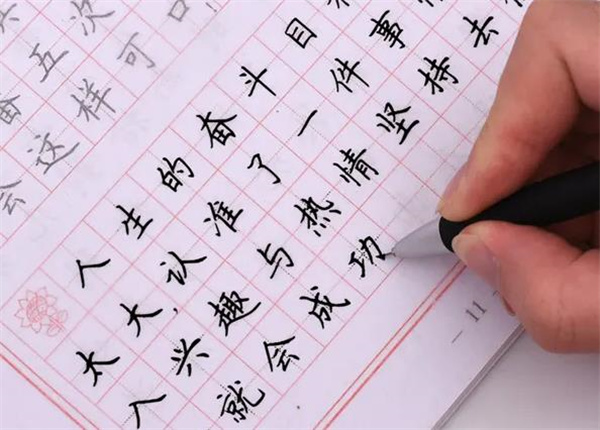 五次
会这样可
人生的奋斗目
太大,认准了一件事
入兴趣与热情坚持去
就会成功
— 11